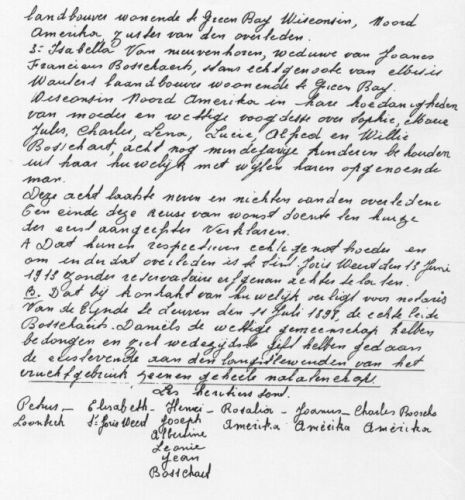 landbouwer wonende te Green Bay Wisconsin, Noord
Amerika, zuster van den overleden.
3: Isabella Van nieuvenhoven, weduwe van Joanes
Franciscus Bosschaerts, thans echtgenoote van
Wauters laandbouwer woonende te Green Bay.
Wisconsin Noord Amerika in hare hoedanigheden
van moeder en wettige voogdesse over Sophie, Marie
Jules, Charles, Lena, Lucie, Alfred en Willie
Bosschaert, acht nog minderjarige kinderen behouden
uit haar huwelijk met wijlen haren opgenoemde
man.
Deze acht laatste neven en nichten vanden overledene
Een einde deze keuse van woonst doende ten huize
der eerst aangeefster Verklaren.
A Dat hunen respectieven echtegenoot broeder en
om in der dat overleden is te Sint Joris Weert den 13 Juni
1913 zonder reservataire erfgenamen achter te laten.
B. Dat bij kontrakt van huwelijk verligt voor notaris
Van de Eynde te Leuven den 11 Juli 1898, de echte lei de
Bosschaerts. Daniëls de wettige gemeenschap hebben
bedongen en zich wederzijdsche gift hebben gedaan
de eerstervende aan den langstlevenden van het
vruchtgebruik zeener geheele nalatenschap.
Les héritiers sont.
Petrus - Elisabeth - Henri - Rosalia - Joanus - Charles Bosscha
Loonbeek St Joris Weerd Joseph Amerika Amérika Amérika
Albertine
Leonie
Jean
Bosschaert